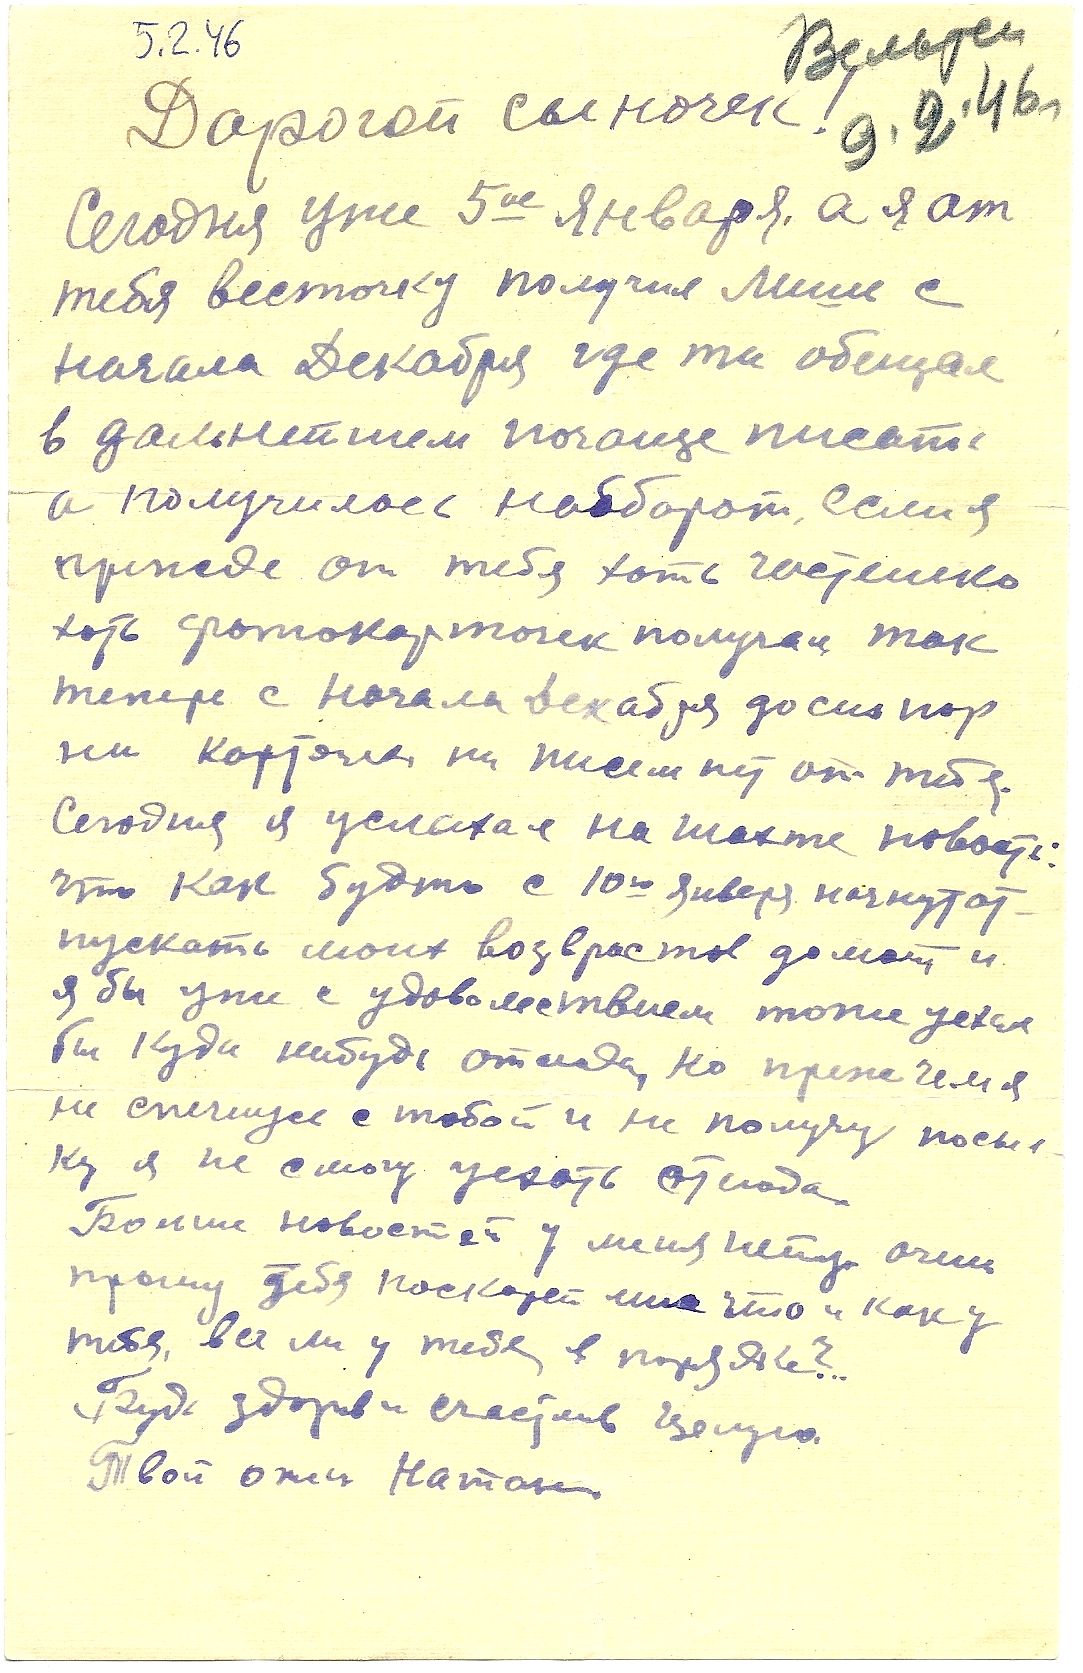 5.2.46
Вельтен
9.2.46г
Дорогой сыночек!
Сегодня уже 5ое января, а я от
тебя весточку получил лишь с
начала Декабря где ты обещал
в дальнейшем почаще писать
а получилось наоборот, Если я
прежде от тебя хоть частенько
хоть фотокарточек получал так
теперь с начала декабря до сих пор
ни карточек ни писем нет от тебя.
Сегодня я услыхал на шахте новость:
что как будто с 10го января начнут от-
пускать моих возврастов домой и
я бы уже с удовольствием тоже уехал
бы куда нибудь отсюда, но преже чем я
не спешусь с тобой и не получу посыл-
ку я не смогу уехать отсюда
Больше новостей у меня нету. очень
прошу тебя поскорей мне что и как у
тебя, все ли у тебя в порядке?..
Будь здоров и счастлив Целую.
Твой отец Натан.